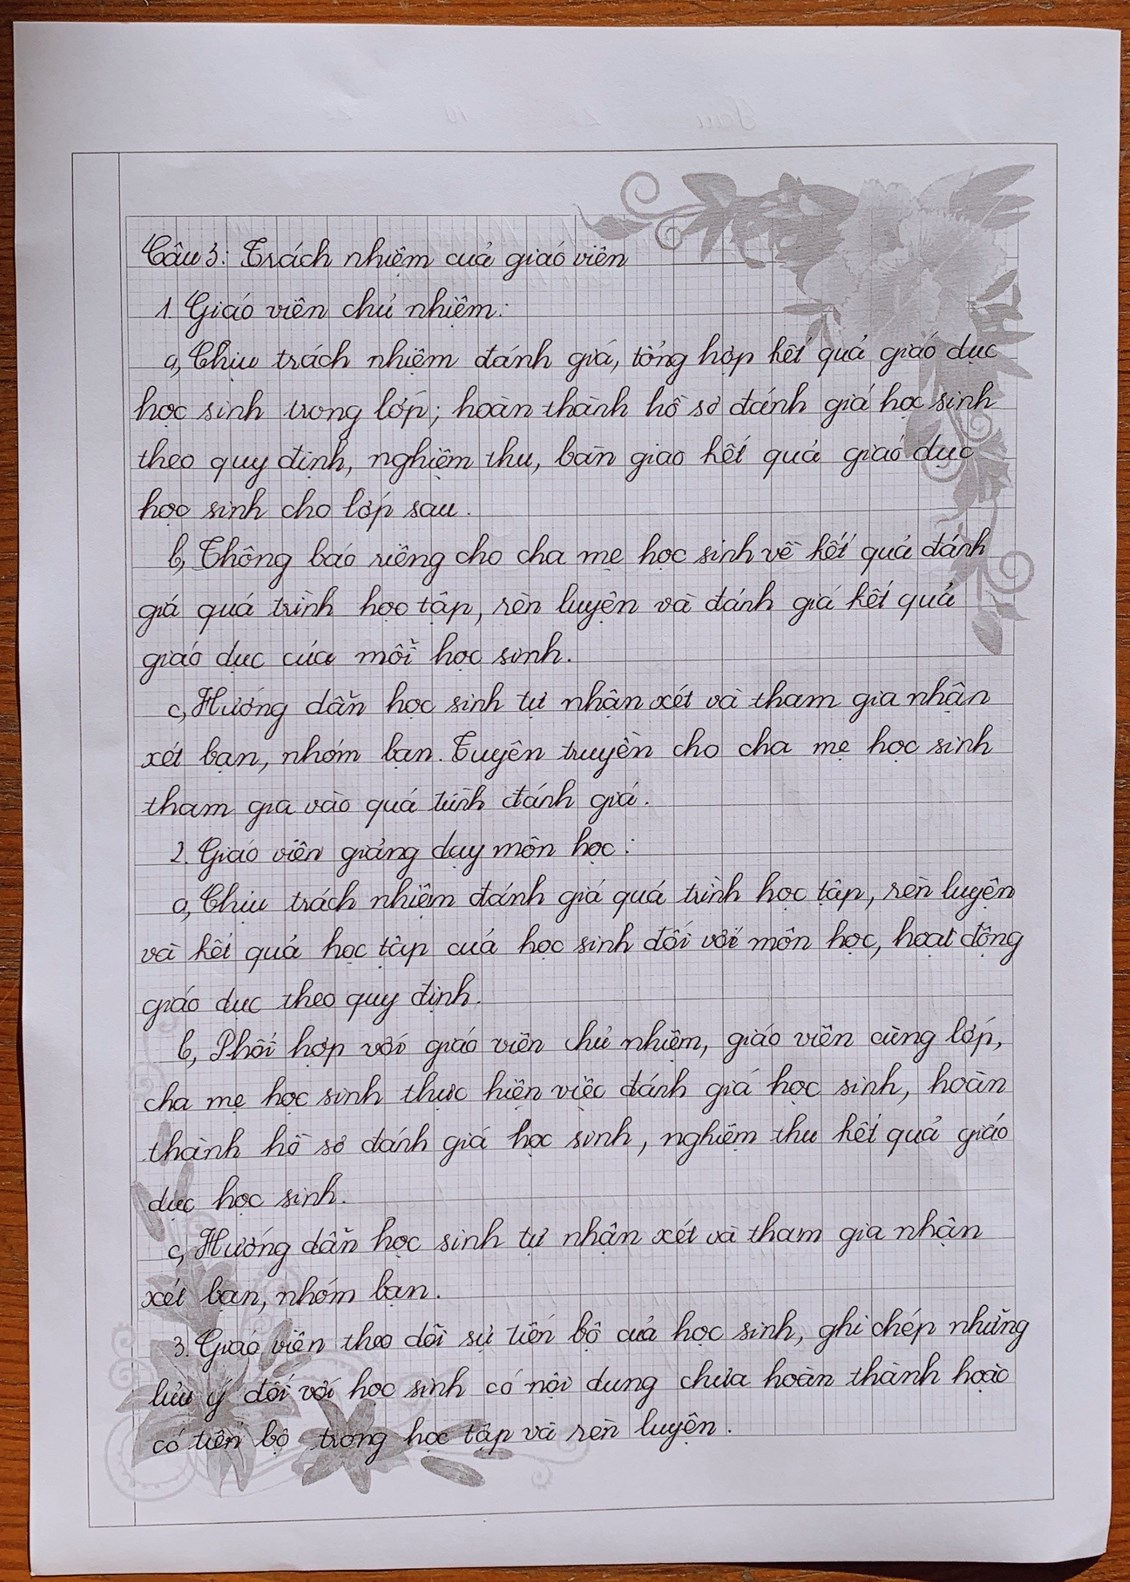 Câu 3: Trách nhiệm của giáo viên
1. Giáo viên chủ nhiệm:
a, Chịu trách nhiệm đánh giá, tổng hợp kết quả giáo dục
học sinh trong lớp; hoàn thành hồ sơ đánh giá học sinh
theo quy định, nghiệm thu, bàn giao kết quả giáo dục
học sinh cho lớp sau.
b, Thông báo riêng cho cha mẹ học sinh về kết quả đánh
giá quá trình học tập, rèn luyện và đánh giá kết quả
giáo dục của mỗi học sinh.
c, Hướng dẫn học sinh tự nhận xét và tham gia nhận
xét bạn, nhóm bạn. Tuyên truyền cho cha mẹ học sinh
tham gia vào quá trình đánh giá.
2. Giáo viên giảng dạy môn học:
a, Chịu trách nhiệm đánh giá quá trình học tập, rèn luyện
và kết quả học tập của học sinh đối với môn học, hoạt động
giáo dục theo quy định.
b, Phối hợp với giáo viên chủ nhiệm, giáo viên cùng lớp,
cha mẹ học sinh thực hiện việc đánh giá học sinh, hoàn
thành hồ sơ đánh giá học sinh, nghiệm thu kết quả giáo
dục học sinh.
c, Hướng dẫn học sinh tự nhận xét và tham gia nhận
xét bạn, nhóm bạn.
3. Giáo viên theo dõi sự tiến bộ của học sinh, ghi chép những
lưu ý đối với học sinh có nội dung chưa hoàn thành hoặc
có tiến bộ trong học tập và rèn luyện.